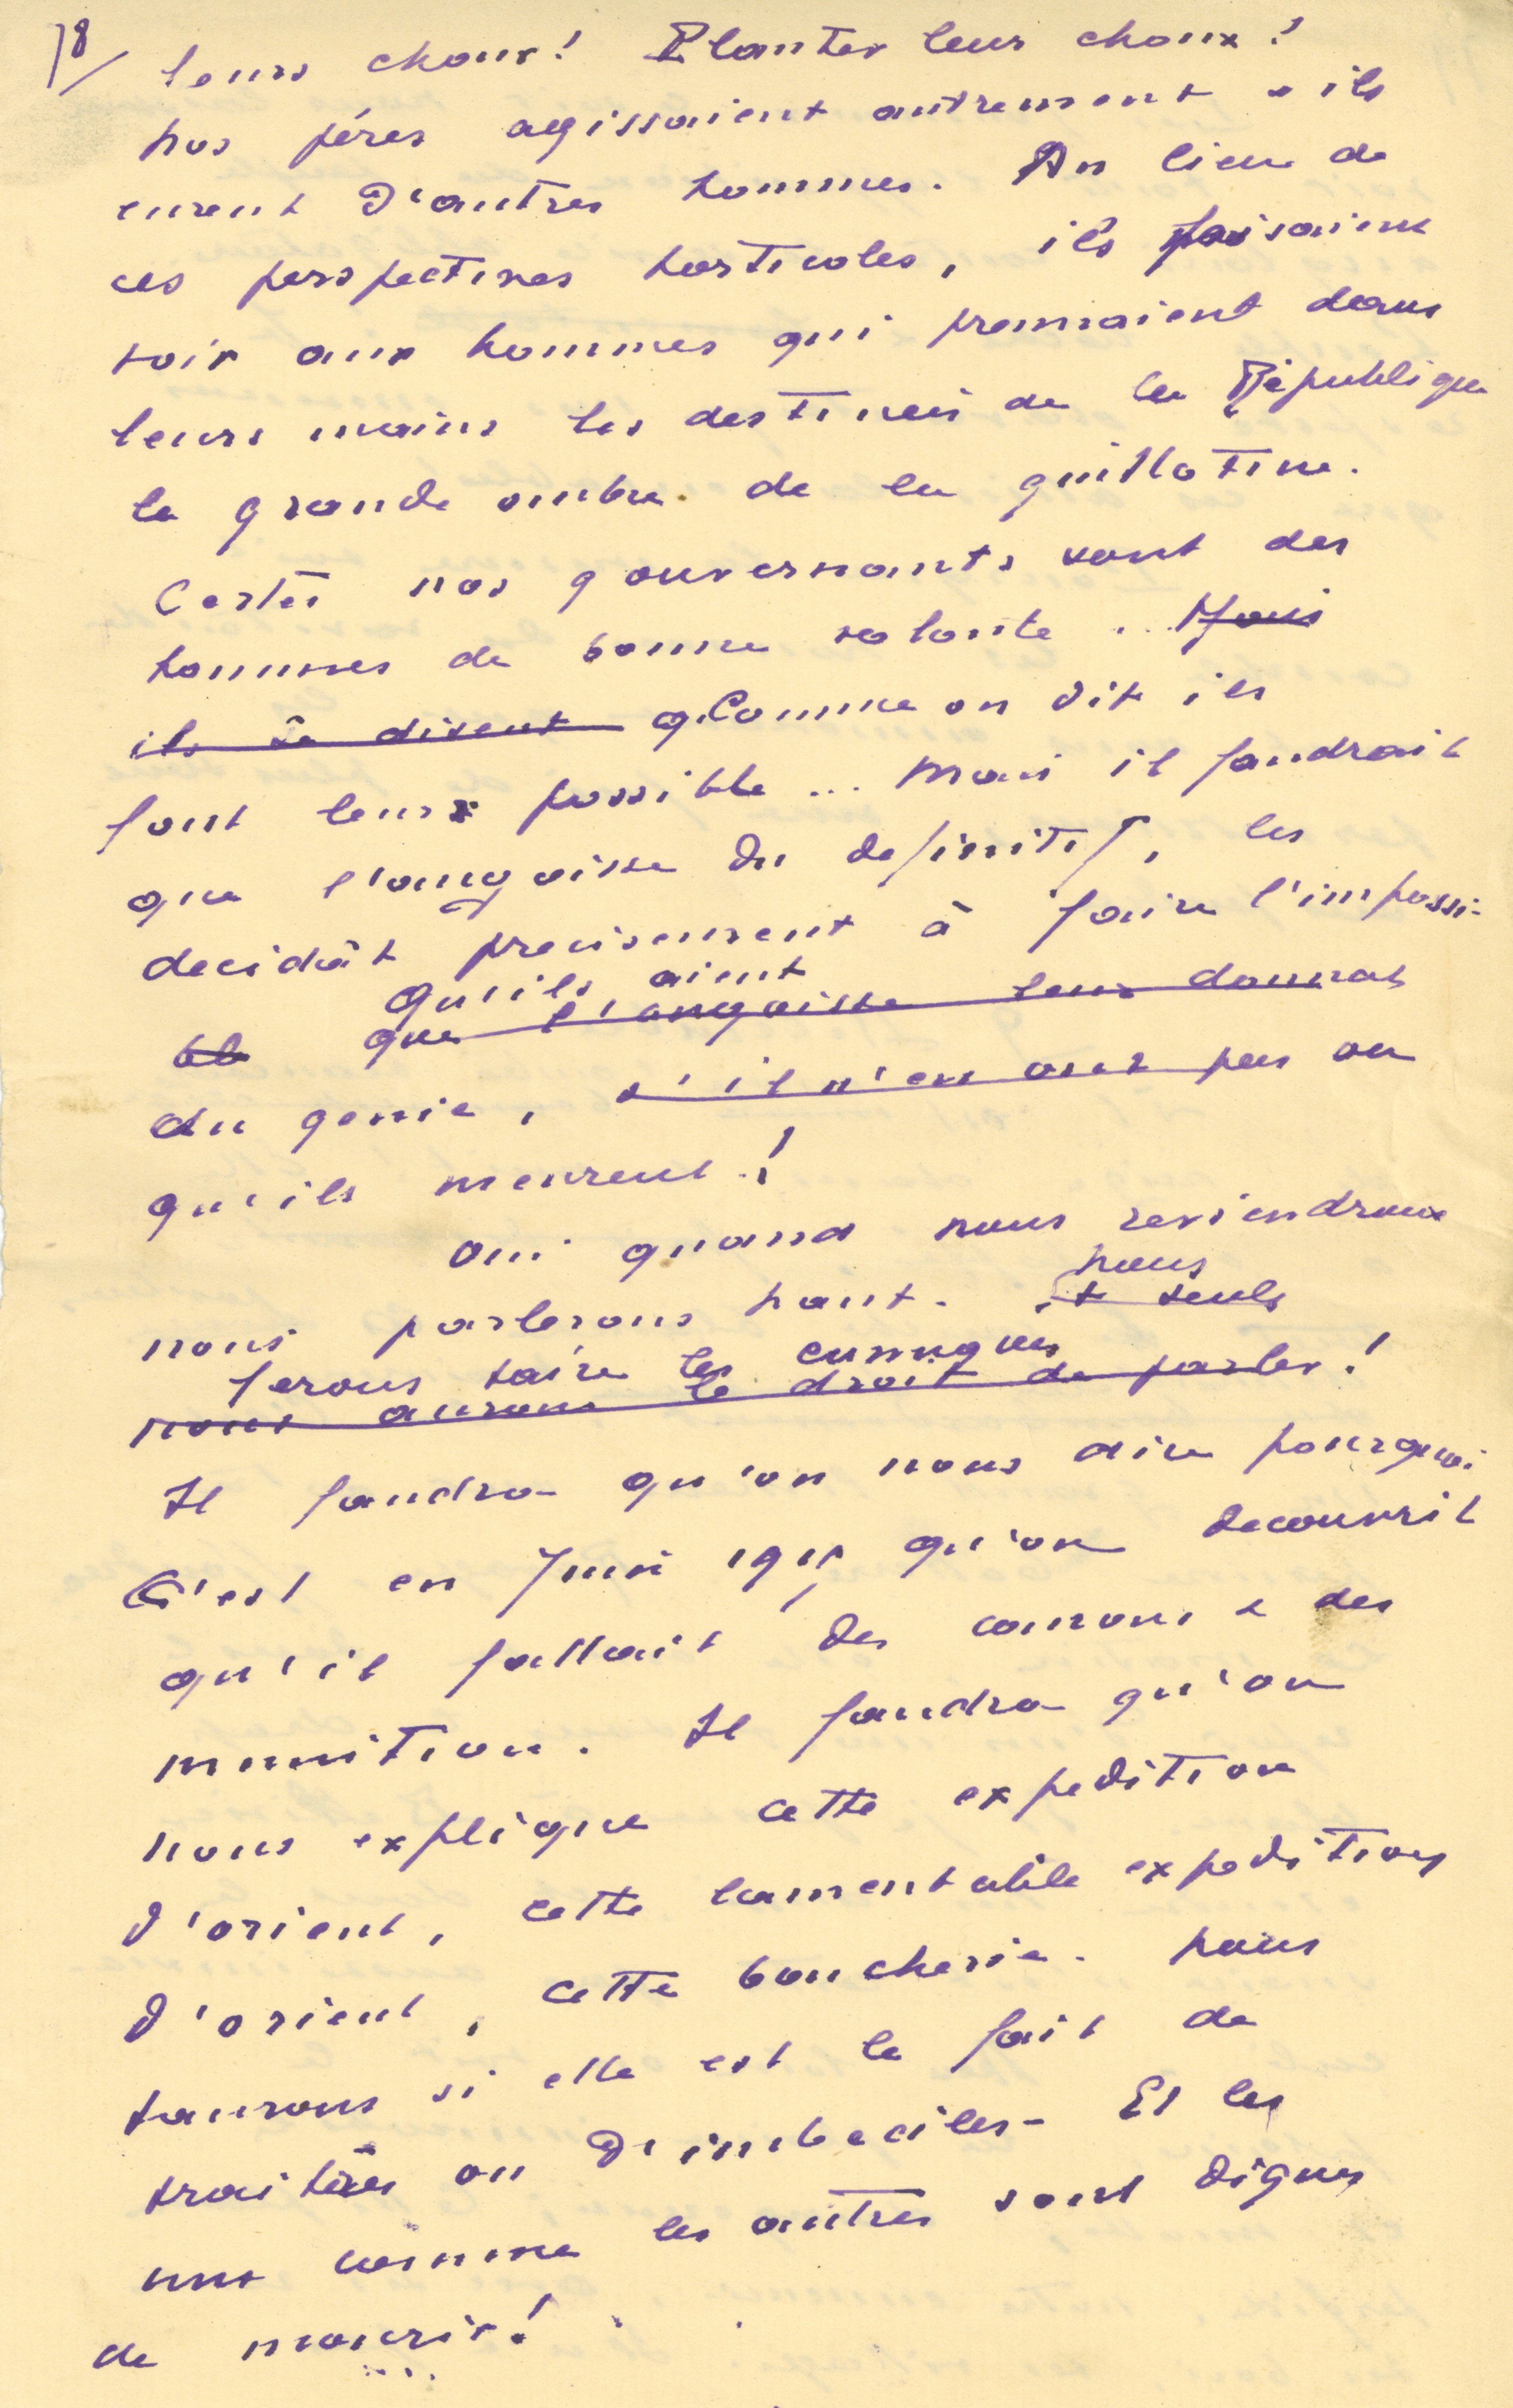 18/ leurs choux! Planter leurs choux!
nos pères agissaient autrement & ils
eurent d'autres hommes. Au lieu de
ces perspectives horticoles, ils faisaient
voir aux hommes qui prennaient dans
leurs mains les destinées de la République
la grande ombre de la guillotine.
Certes nos gouvernants sont des
hommes de bonne volonté ... Mais
ils se disent Comme on dit ils
font leur possible ... Mais il faudrait
que l'angoisse du definitif, les
decidât precisement à faire l'impossi-
qu'ils aient
ble que l'angoisse leur donnat
du genie, s'il n'en ont pas ou
qu'ils meurent!
Oui quand nous reviendrons
nous
nous parlerons haut. et seuls
ferons taire les eunuques
nous aurons le droit de parler!
Il faudra qu'on nous dise pourquoi
C'est en Juin 1915 qu'on decouvrit
qu'il fallait des canons & des
munition. Il faudra qu'on
nous explique cette expedition
d'orient, cette lamentable expedition
d'orient, cette boucherie. nous
saurons si elle est le fait de
traitres ou d'imbeciles - Et les
uns comme les autres sont dignes
de mourir!